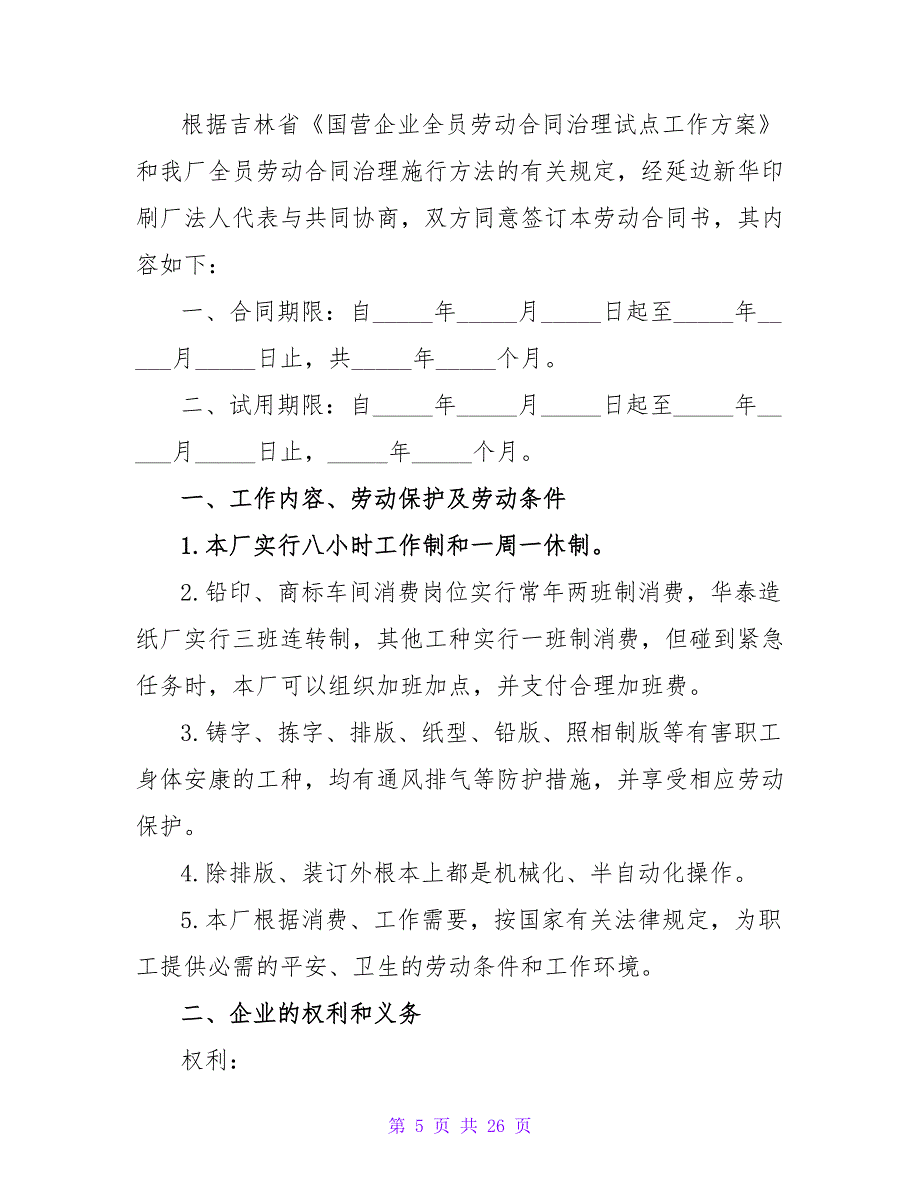 根据吉林省《国营企业全员劳动合同治理试点工作方案》
和我厂全员劳动合同治理施行方法的有关规定，经延边新华印
刷厂法人代表与共同协商，双方同意签订本劳动合同书，其内
容如下：
一、合同期限：自_____年_____月_____日起至_____年__
___月_____日止，共_____年_____个月。
二、试用期限：自_____年_____月_____日起至_____年__
___月_____日止，_____年_____个月。
一、工作内容、劳动保护及劳动条件
1.本厂实行八小时工作制和一周一休制。
2.铅印、商标车间消费岗位实行常年两班制消费，华泰造
纸厂实行三班连转制，其他工种实行一班制消费，但碰到紧急
任务时，本厂可以组织加班加点，并支付合理加班费。
3.铸字、拣字、排版、纸型、铅版、照相制版等有害职工
身体安康的工种，均有通风排气等防护措施，并享受相应劳动
保护。
4.除排版、装订外根本上都是机械化、半自动化操作。
5.本厂根据消费、工作需要，按国家有关法律规定，为职
工提供必需的平安、卫生的劳动条件和工作环境。
二、企业的权利和义务
权利：
第 5 页 共 26 页